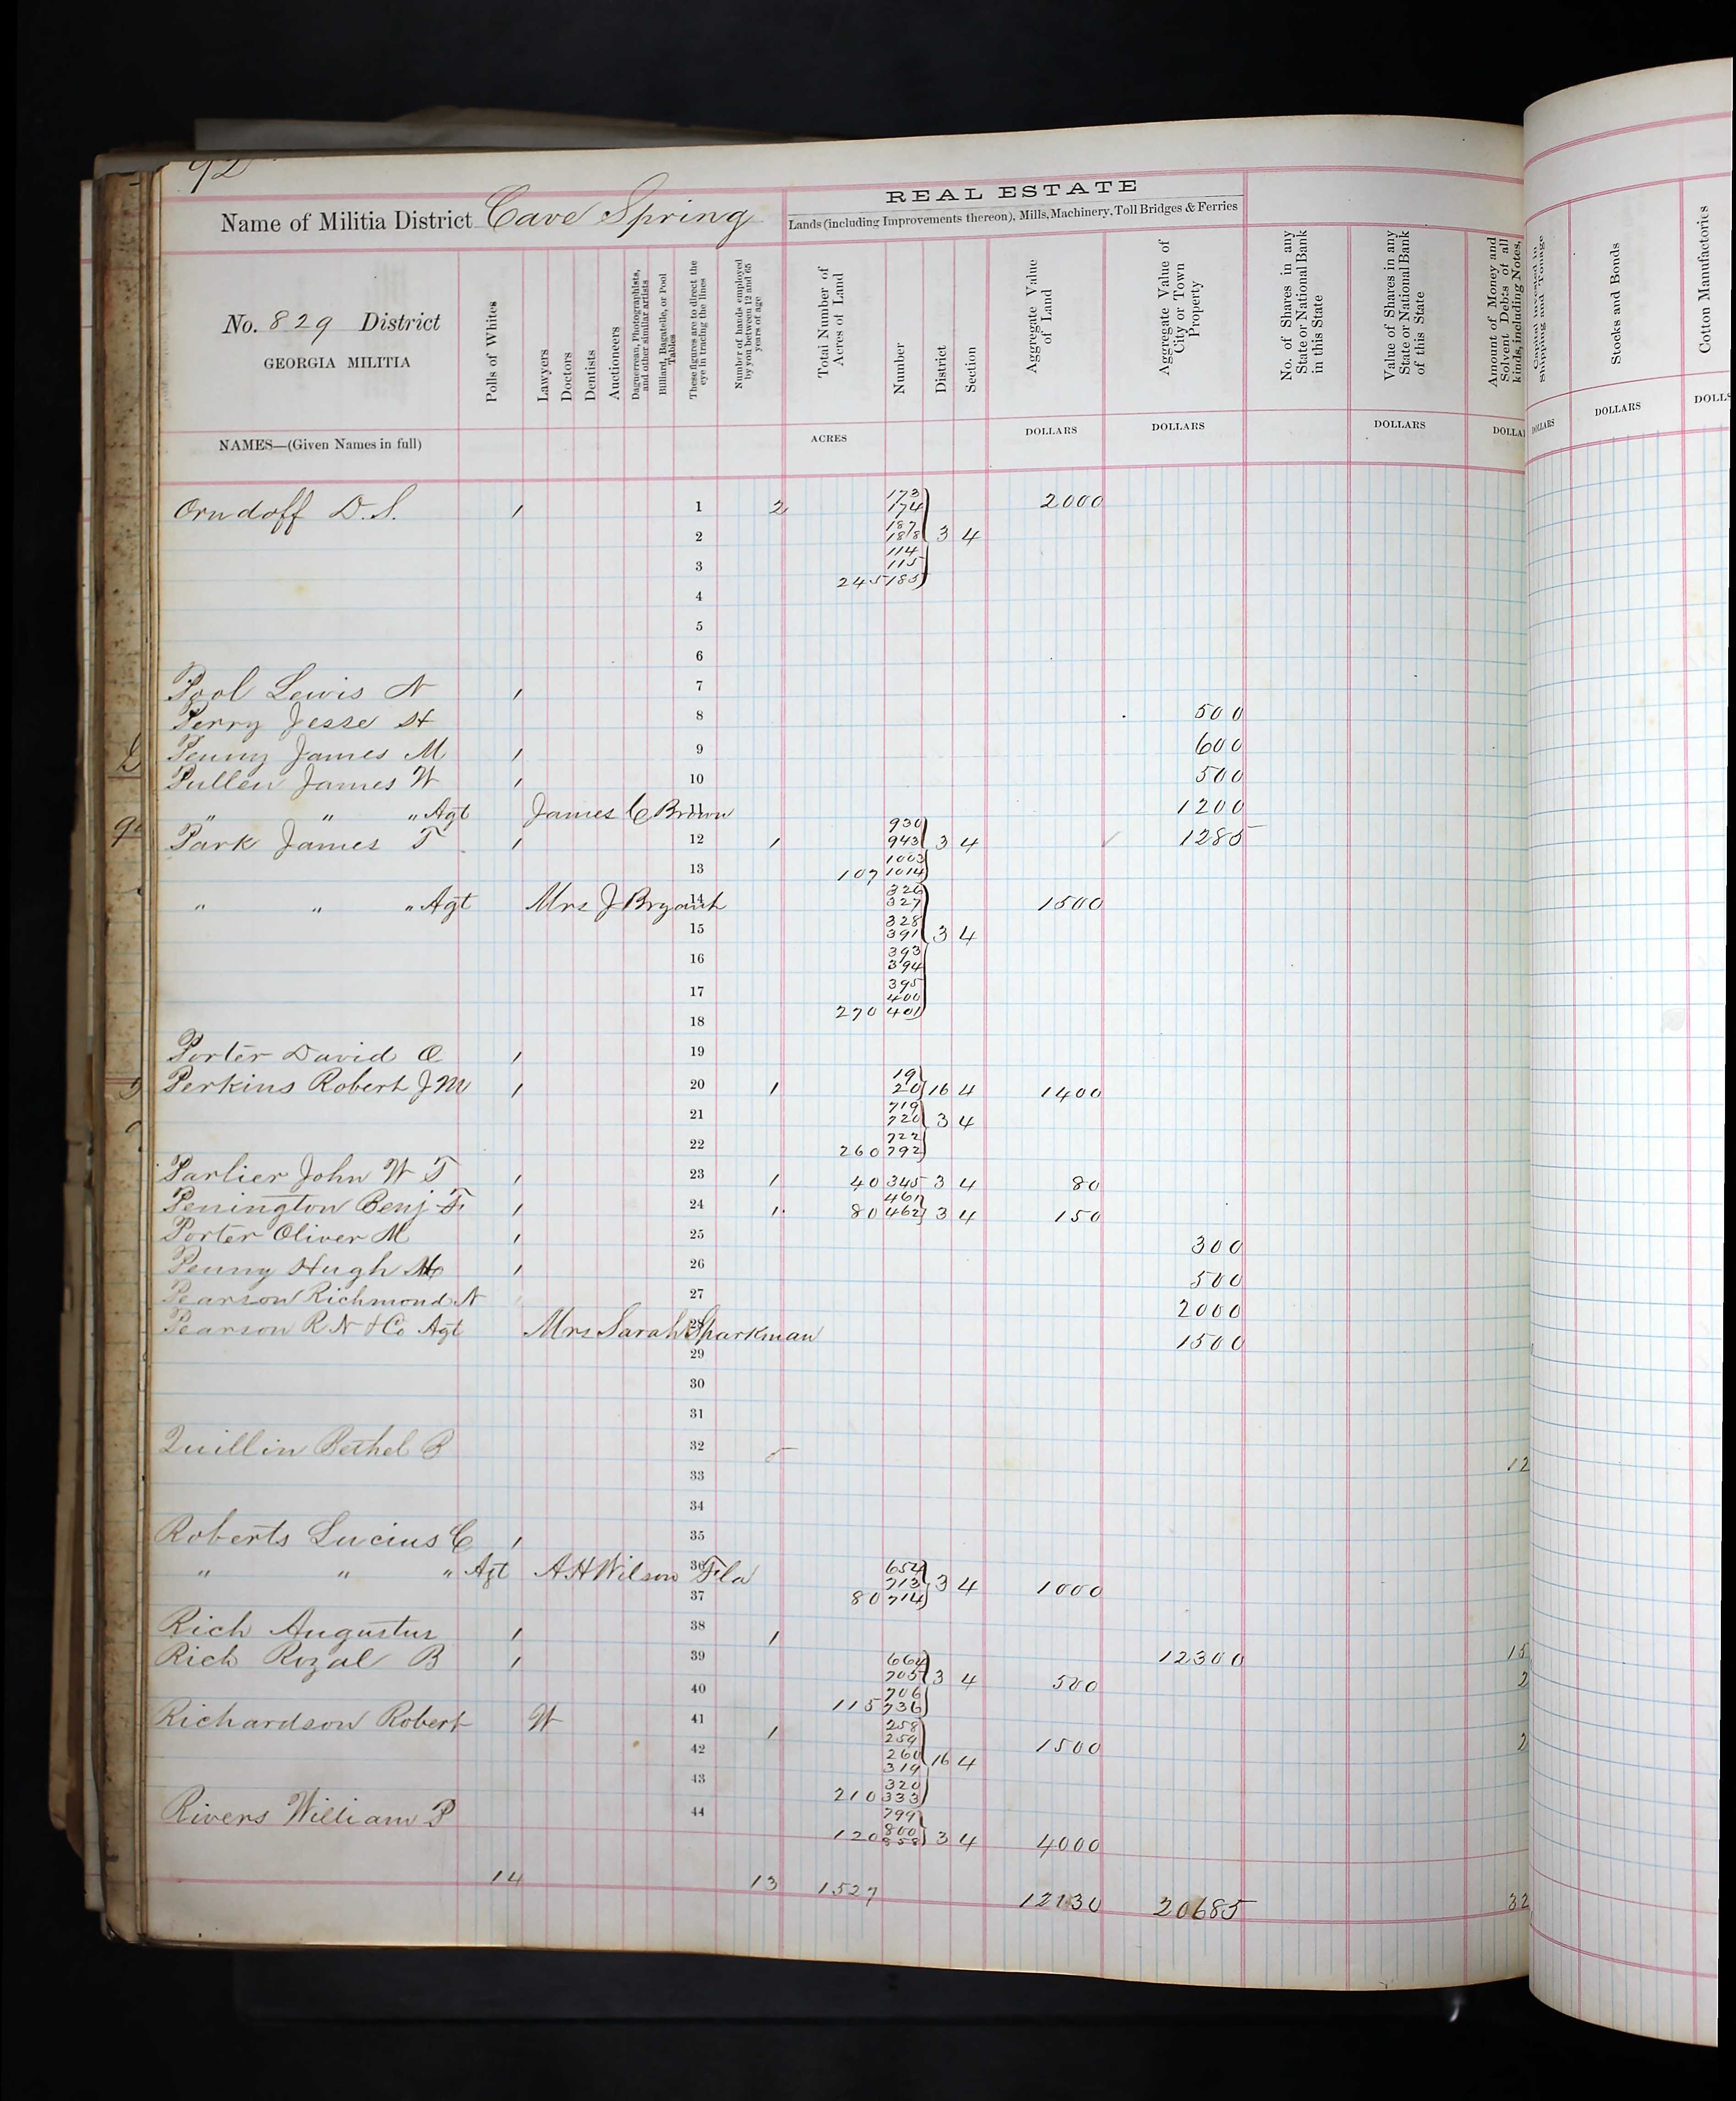 92
REAL ESTATE
Name of Militia District Cave Spring
Lands (including Improvements thereon), Mills, Machinery, Toll Bridges & Ferries
No. 829 District
GEORGIA MILITIA
NAMES—(Given Names in full)
Polls of Whites
Lawyers
Doctors
Dentists
Auctioneers
Daguerrean, Photographists, and other similar artists
Billiard, Bagatelle, or Pool Tables
These figures are to direct the eye in tracing the lines
Number of hands employed by you between 12 and 65 years of age
Total Number of Acres of Land
ACRES
Number
District
Section
Aggregate Value of Land
DOLLARS
Aggregate Value of City or Town Property
DOLLARS
No. of Shares in any State or National Bank in this State
Value of Shares in any State or National Bank of this State
DOLLARS
Amount of Money and Solvent Debts of all kinds, including Notes,
DOLLA
Capital Invested in Shipping and Tonnage
DOLLARS
Stocks and Bonds
DOLLARS
Cotton Manufactories
DOLL
Orndoff D. S. 1 1 2 173 2000
174
2 187
188 3 4
3 114
115
245 185
4
5
6
Pool Lewis N 1 7
Perry Jesse H 8 500
Penny James M 1 9 600
Pullen James W 1 10 500
" " " Agt James C Brown 11 1200
Park James T 1 12 1 930
943 3 4 1285
13 1003
107 1014
" " " Agt Mrs J Bryant 14 326
327 1500
15 328
391 3 4
16 393
394
17 395
400
18 270 401
Porter David O 1 19
Perkins Robert J M 1 20 1 19
20 16 4 1400
21 719
720 3 4
22 722
260 792
Parlier John W T 1 23 1 40 345 3 4 80
Penington Benj F 1 24 1 461
80 462 3 4 150
Porter Oliver M 1 25 300
Penny Hugh 1 26 500
Pearson Richmond N 27 2000
Pearson R N & Co Agt Mrs Sarah Sparkman 28 1500
29
30
31
Quillin Bethel B 32 5
12
33
34
Roberts Lucius C 1 35
" " " Agt A H Wilson Fla 36 654
713 3 4 1000
37 80 714
Rich Augustus 1 38 1
Rich Rozal B 1 39 664 12300 15
705 3 4 500 2
40 706
115 736
Richardson Robert W 41 1 258
259 1500 2
42 260 16 4
319
43 320
210 333
Rivers William P 44 799
800
120 858 3 4 4000
14 13 1527 12130 20685 32